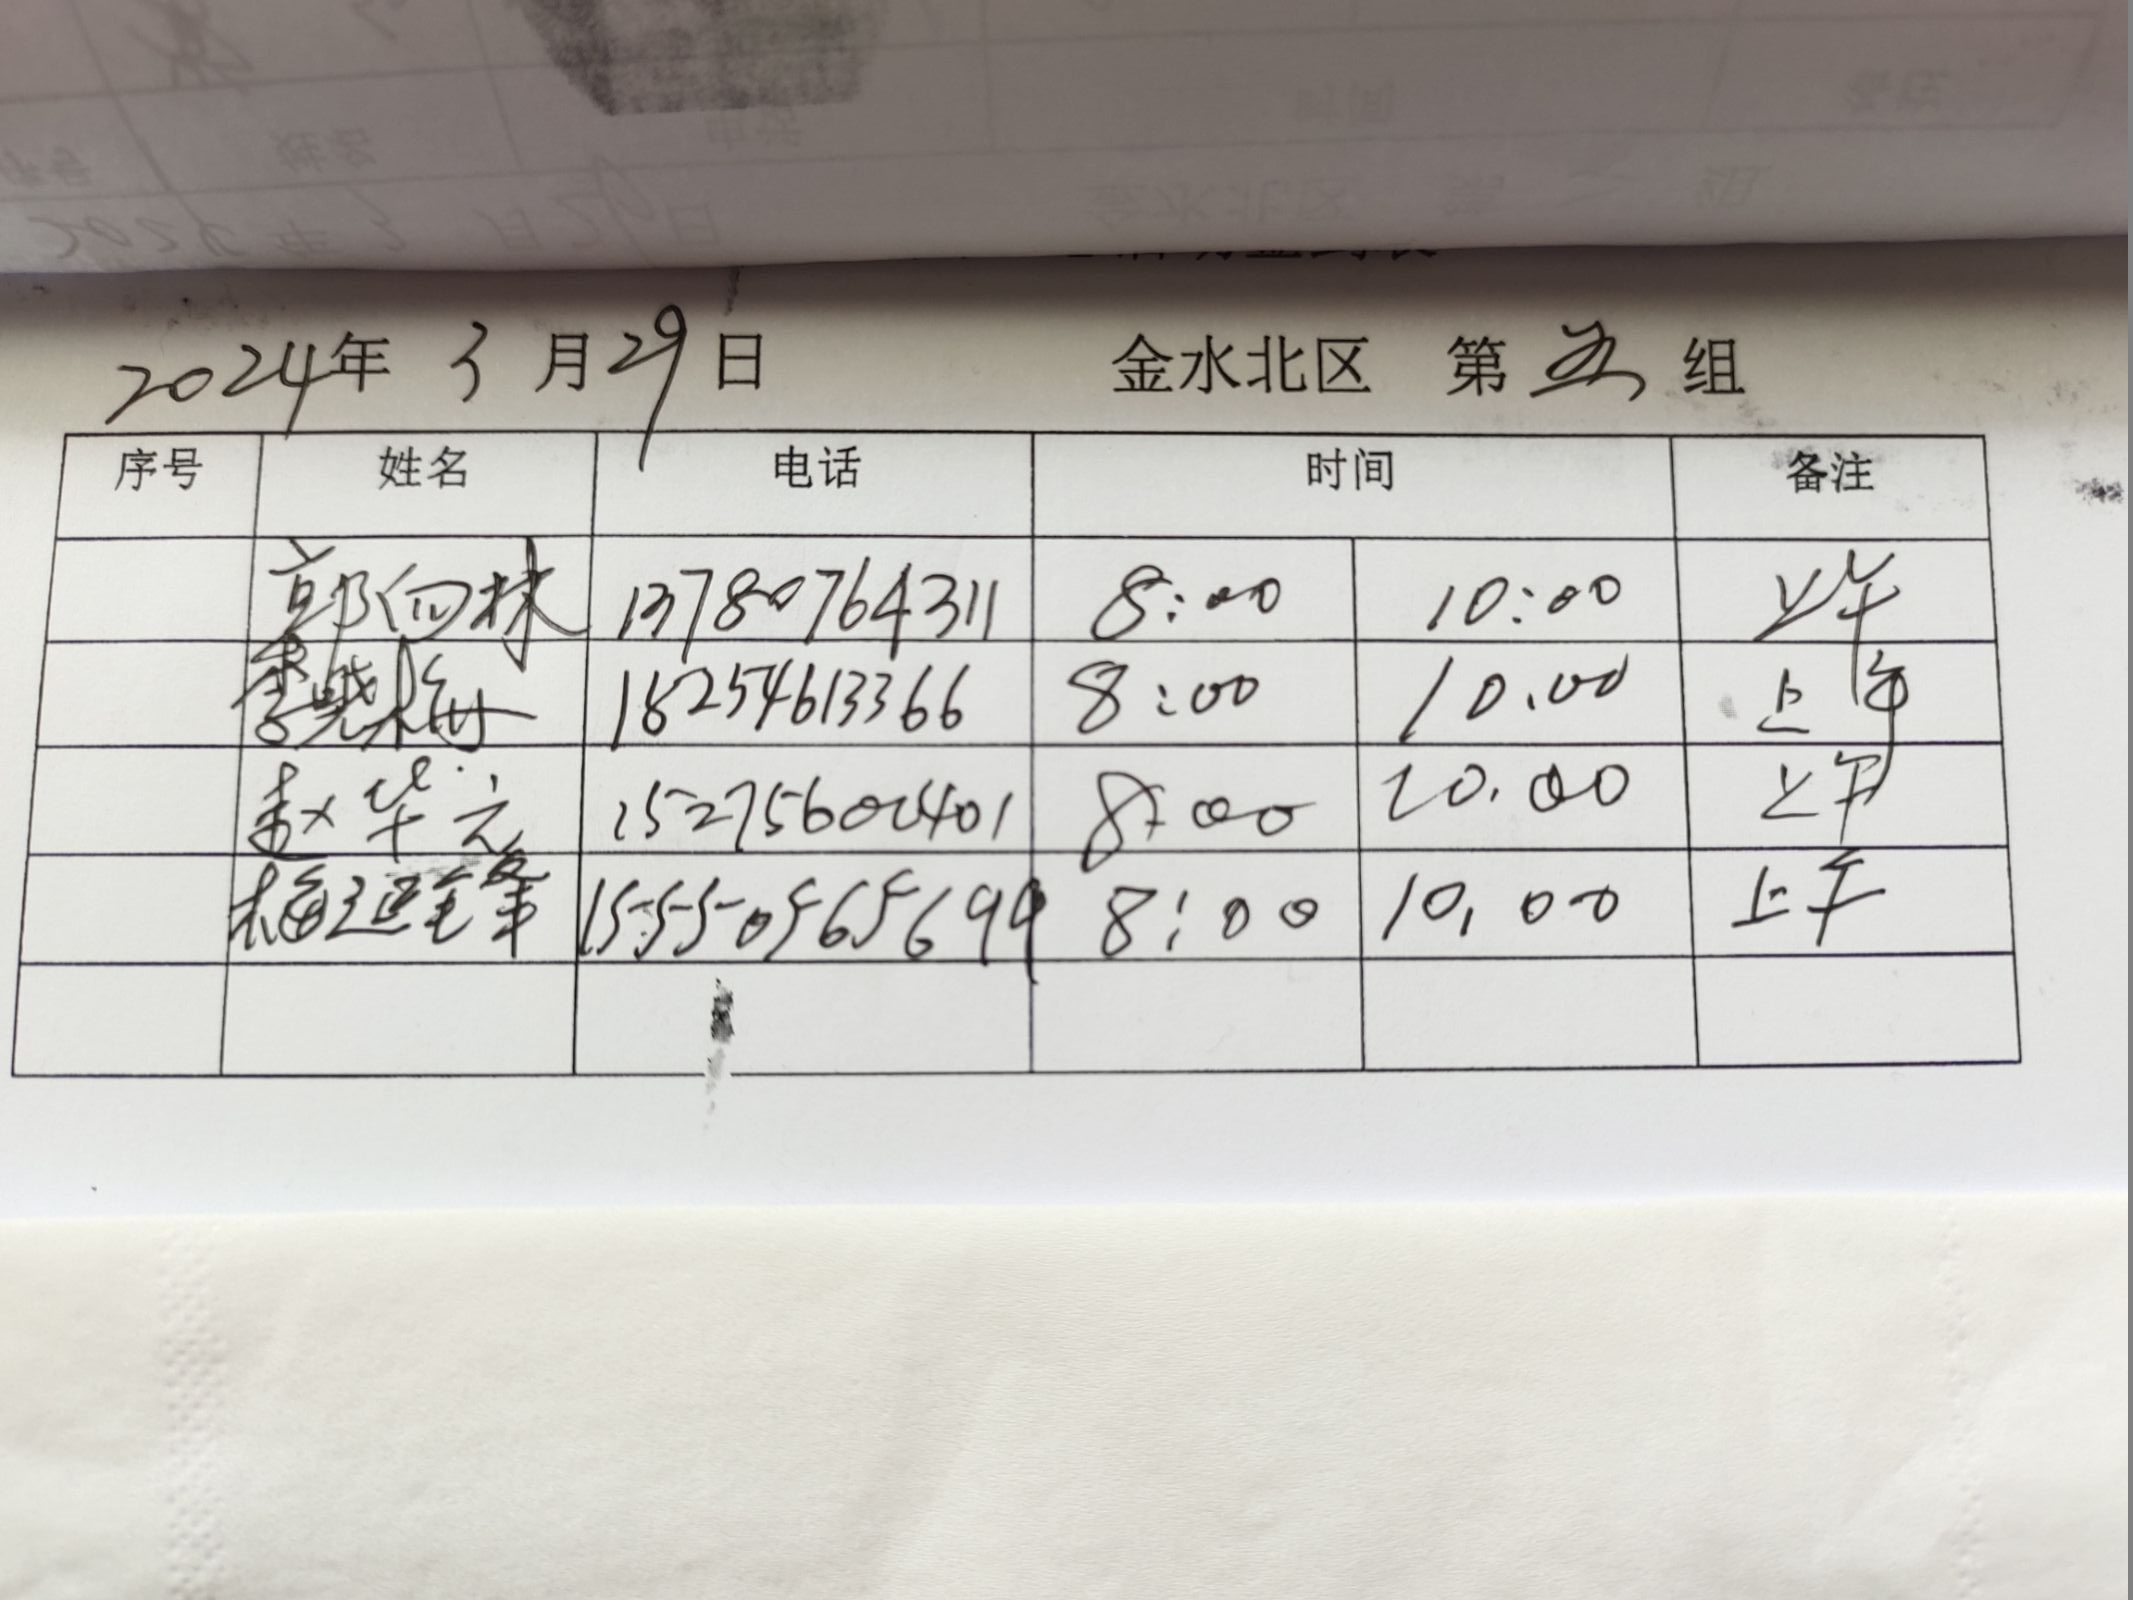 2024年 3 月 29 日 金水北区 第 五 组
序号 姓名 电话 时间 备注
郭向林 13780764311 8:00 10:00 上午
李晓梅 18254613366 8:00 10.00 上午
赵华元 15275600401 8:00 10.00 上午
8:00 10.00 上午